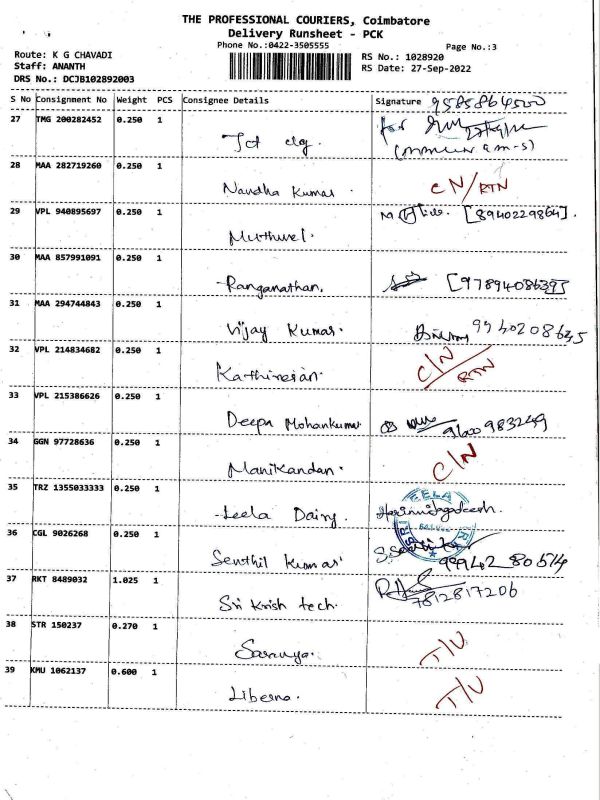 THE PROFESSIONAL COURIERS, Coimbatore
Delivery Runsheet - PCK
Phone No.:0422-3505555
Page No.:3
Route: K G CHAVADI
RS No.: 1028920
Staff: ANANTH
RS Date: 27-Sep-2022
DRS No.: DCJB102892003
S No Consignment No Weight PCS Consignee Details Signature 9585864500
27 TMG 200282452 0.250 1 for
28 MAA 282719260 0.250 1
Nandha Kumar C N/RTN
29 VPL 940895697 0.250 1 [8940229864].
Muthuvel.
30 MAA 857991091 0.250 1
Ranganathan. [97894086395
31 MAA 294744843 0.250 1
Vijay Kumar. 9940208645
32 VPL 214834682 0.250 1 C/N
Kathiresan. RTN
33 VPL 215386626 0.250 1
Deepa Mohankumar 9600983249
34 GGN 97728636 0.250 1 C/N
Manikandan.
35 TRZ 1355033333 0.250 1
Leela Dairy.
36 CGL 9026268 0.250 1
Senthil Kumar 99402 80514
37 RKT 8489032 1.025 1
Sri Krish tech. 7812817206
38 STR 150237 0.270 1
Saranya. T/U
39 KMU 1062137 0.600 1
Liberno. T/U